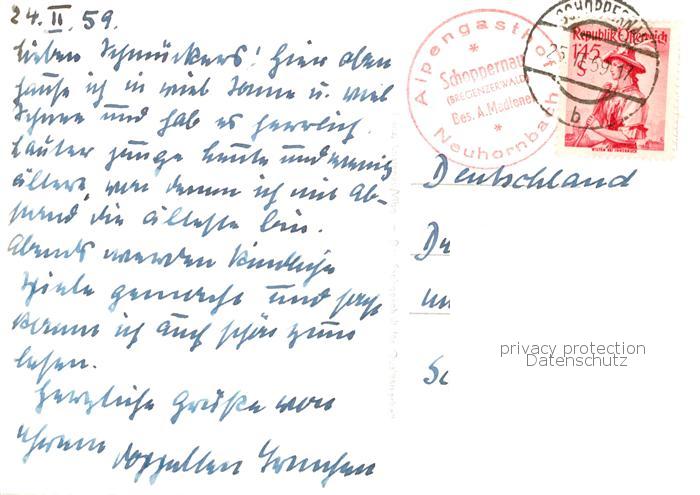 24. II. 59.
Lieben Schmückers! Hier oben
hause ich in viel Sonne u. viel
Schnee und hab es herrlich.
Lauter junge Leute und wenig
ältere, von denen ich mit Ab-
stand die älteste bin.
Abends werden kindliche
Spiele gemacht und sogar
komm ich auch schön zum
lesen.
Herzliche Grüße von
Ihrem
Alpengasthof
Schoppernau
(BREGENZERWALD)
Bes. A. Madlener
Neuhornbach
SCHOPPERNAU
b
Republik Österreich
1.45
S
Deutschland
privacy protection
Datenschutz